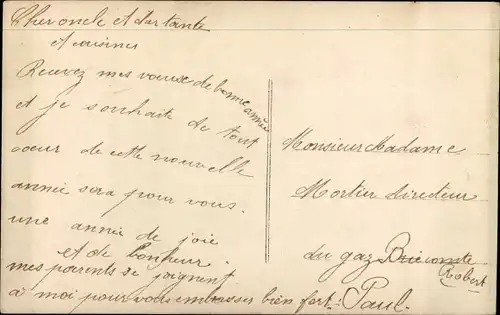 Cher oncle et cher tante
et cousines
Recevez mes voeux de bonne année
et je souhaite de tout
coeur de cette nouvelle
année sera pour vous.
une année de joie
et de bonheur.
mes parents se joignent
à moi pour vous embrasser bien fort. Paul.
Monsieur Madame
Mortier directeur
du gaz Brie comte
Robert